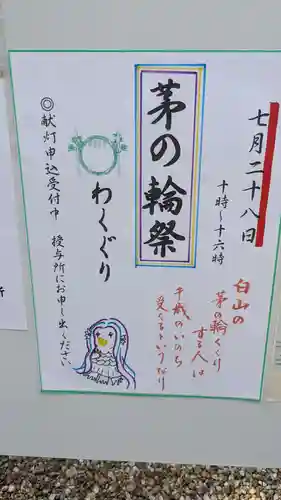 七月二十八日
十時～十六時
茅の輪祭
わくぐり
白山の
茅の輪くぐり
する人は
千歳のいのち
受くるというなり
◎献灯申込受付中
授与所にお申し出ください